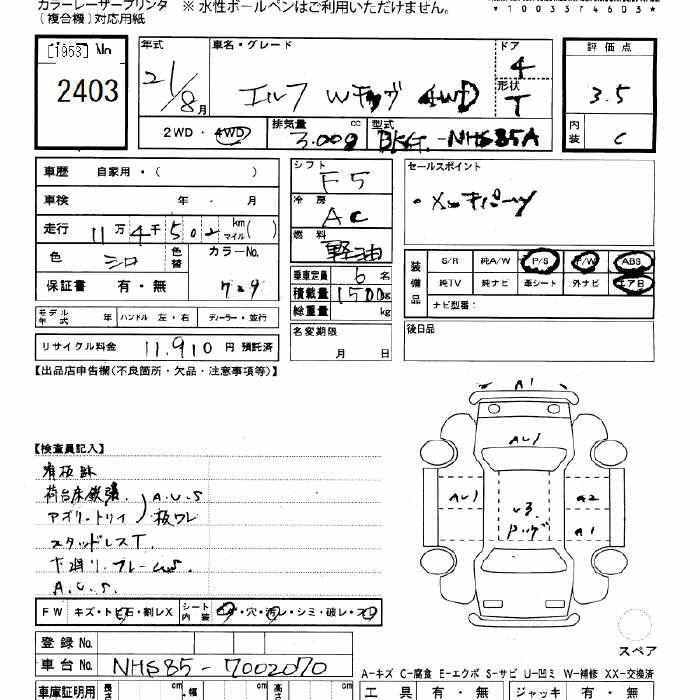 カラーレーザープリンタ ※ 水性ボールペンはご利用いただけません。
(複合機)対応用紙
*1003374603*
[1953] No
2403
年式 21/8月
車名・グレード エルフ Wキャブ 4WD
ドア 4
形状 T
評価点 3.5
内装 C
2WD・4WD
排気量 3.000 cc
型式 BKG-NHS85A
車歴 自家用・( )
車検 年・月
走行 11万4千502 km マイル( )
色 シロ 色替 カラーNo. 729
保証書 有・無
シフト F5
冷房 AC
燃料 軽油
乗車定員 6名
積載量 1500kg
総重量 kg
セールスポイント
装備品 S/R 純A/W P/S P/W ABS
純TV 純ナビ 革シート 外ナビ エアB
ナビ型番:
モデル年式 年 ハンドル 左・右 ディーラー・並行
名変期限 月 日
後日品
リサイクル料金 11,910円 預託済
【出品店申告欄(不良箇所・欠品・注意事項等)】
【検査員記入】
看板跡
荷台床鉄張
アオリ・トリイ
A.U.S
板ワレ
スタッドレスT.
下廻り・フレーム
A.U.S.
A1
AU1
AU1
U3
A2
A1
FW キズ・トビ石・割レX シート内装 コゲ・穴・汚レ・シミ・破レ・スレ
登録No.
車台No. NHS85-7002070
スペア
A-キズ C-腐食 E-エクボ S-サビ U-凹ミ W-補修 XX-交換済
車庫証明用 長さ cm 幅 cm 高さ cm
工具 有・無 ジャッキ 有・無